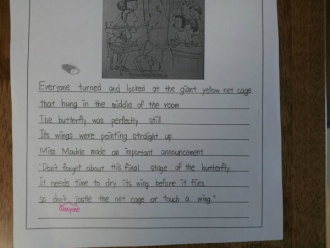 Everyone turned and looked at the giant yellow net cage
that hung in the middle of the room
The butterfly was perfectly still
Its wings were pointing straight up.
Miss Mackle made an important announcement
"Don't forget about this final stage of the butterfly.
It needs time to dry its wing before it flies
so don't jostle the net cage or touch a wing."